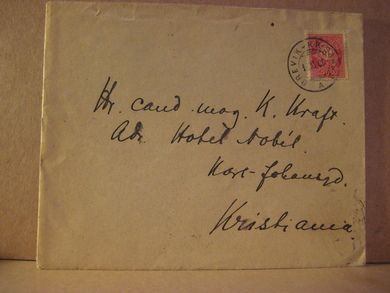 BREVIK-KR.
Hr. cand. mag. K. Kraft.
Adr Hotel Nobel.
Karl-Johansgd.
Kristiania.